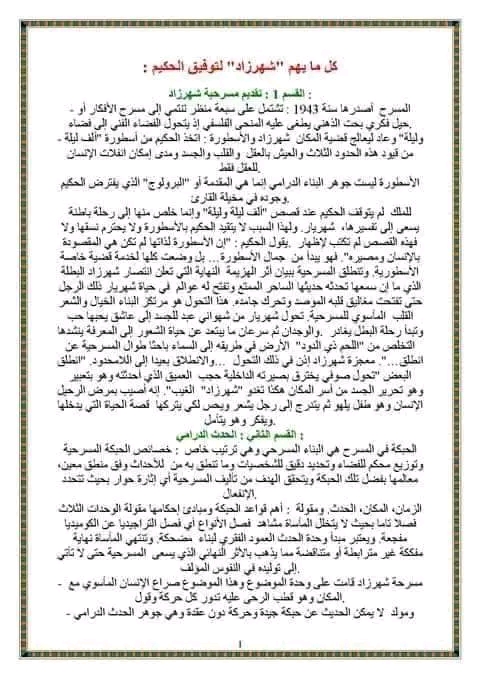 كل ما يهم "شهرزاد" لتوفيق الحكيم :
: القسم 1 : تقديم مسرحية شهرزاد
المسرح أصدرها سنة 1943 : تشتمل على سبعة مناظر تنتمي إلى مسرح الأفكار أو -
.حيل فكري بحت الذهني يطغى عليه المنحى الفلسفي إذ يتحول الفضاء الفني إلى فضاء
وليلة" وعاد ليعالج قضية المكان شهرزاد والأسطورة : اتخذ الحكيم من أسطورة "ألف ليلة -
من قيود هذه الحدود الثلاث والعيش بالعقل والقلب والجسد ومدى إمكان انفلات الإنسان
.للعقل فقط
الأسطورة ليست جوهر البناء الدرامي إنما هي المقدمة أو "البرولوج" الذي يفترض الحكيم
.وجوده في مخيلة القارئ
للملك لم يتوقف الحكيم عند قصص "ألف ليلة وليلة" وإنما خلص منها إلى رحلة باطنة
يسعى إلى تفسيرها، شهريار. ولهذا السبب لا يتقيد الحكيم بالأسطورة ولا يحترم نسقها ولا
فهذه القصص لم تكتب لإظهار .يقول الحكيم : "إن الأسطورة لذاتها لم تكن هي المقصودة
بالإنسان ومصيره". فهو يبدأ من جمال الأسطورة... بل وضعت كلها لخدمة قضية خاصة
الأسطورية. وتنطلق المسرحية ببيان أثر الهزيمة النهاية التي تعلن انتصار شهرزاد البطلة
الذي ما إن سمعها تحدثه حديثها الساحر الممتع وتفتح له عوالم في حياة شهريار ذلك الرجل
حتى تفتحت مغاليق قلبه الموصد وتحرك جامده. هذا التحول هو مرتكز البناء الخيال والشعر
القلب المأسوي للمسرحية. تحول شهريار من شهواني عبد للجسد إلى عاشق يحبها حب
وتبدأ رحلة البطل يغادر .والوجدان ثم سرعان ما يبتعد عن حياة الشعور إلى المعرفة ينشدها
التخلص من "اللحم ذي الدود" الأرض في طريقه إلى السماء باحثا طوال المسرحية عن
انطلق....". معجزة شهرزاد إذن في ذلك التحول ...والانطلاق بعيدا إلى اللامحدود. "انطلق
البعض "تحول صوفي يخترق بصيرته الداخلية حجب العميق الذي أحدثته وهو بتعبير
وهو تحرير الجسد من أسر المكان هكذا تغدو "شهرزاد" الغيب". إنه أصيب بمرض الرحيل
الإنسان وهو طفل يلهو ثم يتدرج إلى رجل يشعر ويحس لكي يتركها قصة الحياة التي يدخلها
.ويفكر وهو يتأمل
: القسم الثاني : الحدث الدرامي
الحبكة في المسرح هي البناء المسرحي وهي ترتيب خاص : خصائص الحبكة المسرحية
وتوزيع محكم للفضاء وتحديد دقيق للشخصيات وما تنطق به من للأحداث وفق منطق معين،
معالمها بفضل تلك الحبكة ويتحقق الهدف من تأليف المسرحية أي إثارة حوار بحيث تتحدد
.الإنفعال
الزمان، المكان، الحدث. ومقولة : أهم قواعد الحبكة ومبادئ إحكامها مقولة الوحدات الثلاث
فصلا تاما بحيث لا يتخلل المأساة مشاهد فصل الأنواع أي فصل التراجيديا عن الكوميديا
مفجعة. ويعتبر مبدأ وحدة الحدث العمود الفقري لبناء مضحكة. وتنتهي المأساة نهاية
مفككة غير مترابطة أو متناقضة مما يذهب بالأثر النهائي الذي يسعى المسرحية حتى لا تأتي
.إلى توليده في النفوس المؤلف
مسرحة شهرزاد قامت على وحدة الموضوع وهذا الموضوع صراع الإنسان المأسوي مع -
.المكان وهو قطب الرحى عليه تدور كل حركة وقول
ومولد لا يمكن الحديث عن حبكة جيدة وحركة دون عقدة وهي جوهر الحدث الدرامي -
1